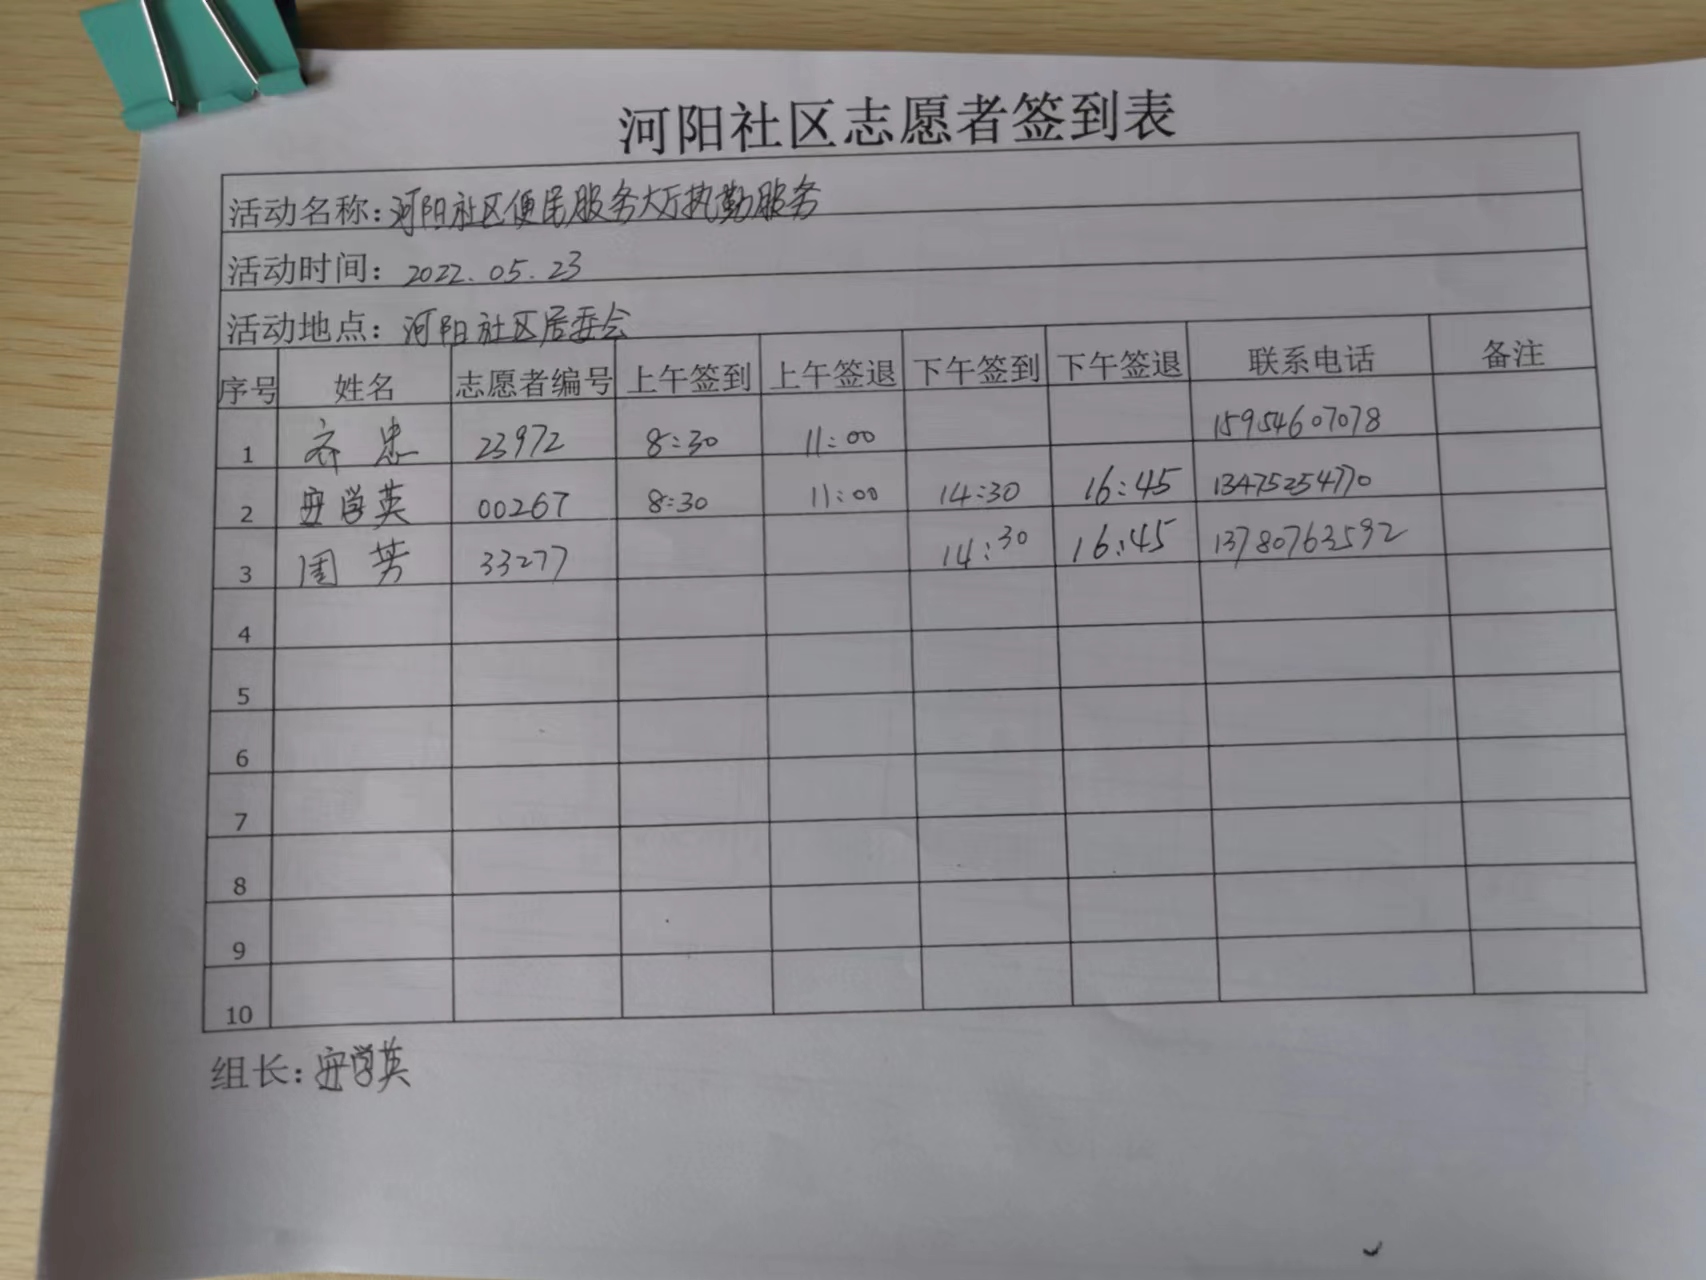 河阳社区志愿者签到表
活动名称:河阳社区便民服务大厅执勤服务
活动时间:2022.05.23
活动地点:河阳社区居委会
序号 姓名 志愿者编号 上午签到 上午签退 下午签到 下午签退 联系电话 备注
1 齐忠 23972 8:30 11:00 15954607078
2 安学英 00267 8:30 11:00 14:30 16:45 13475254770
3 周芳 33277 14:30 16:45 13780763592
4
5
6
7
8
9
10
组长:安学英